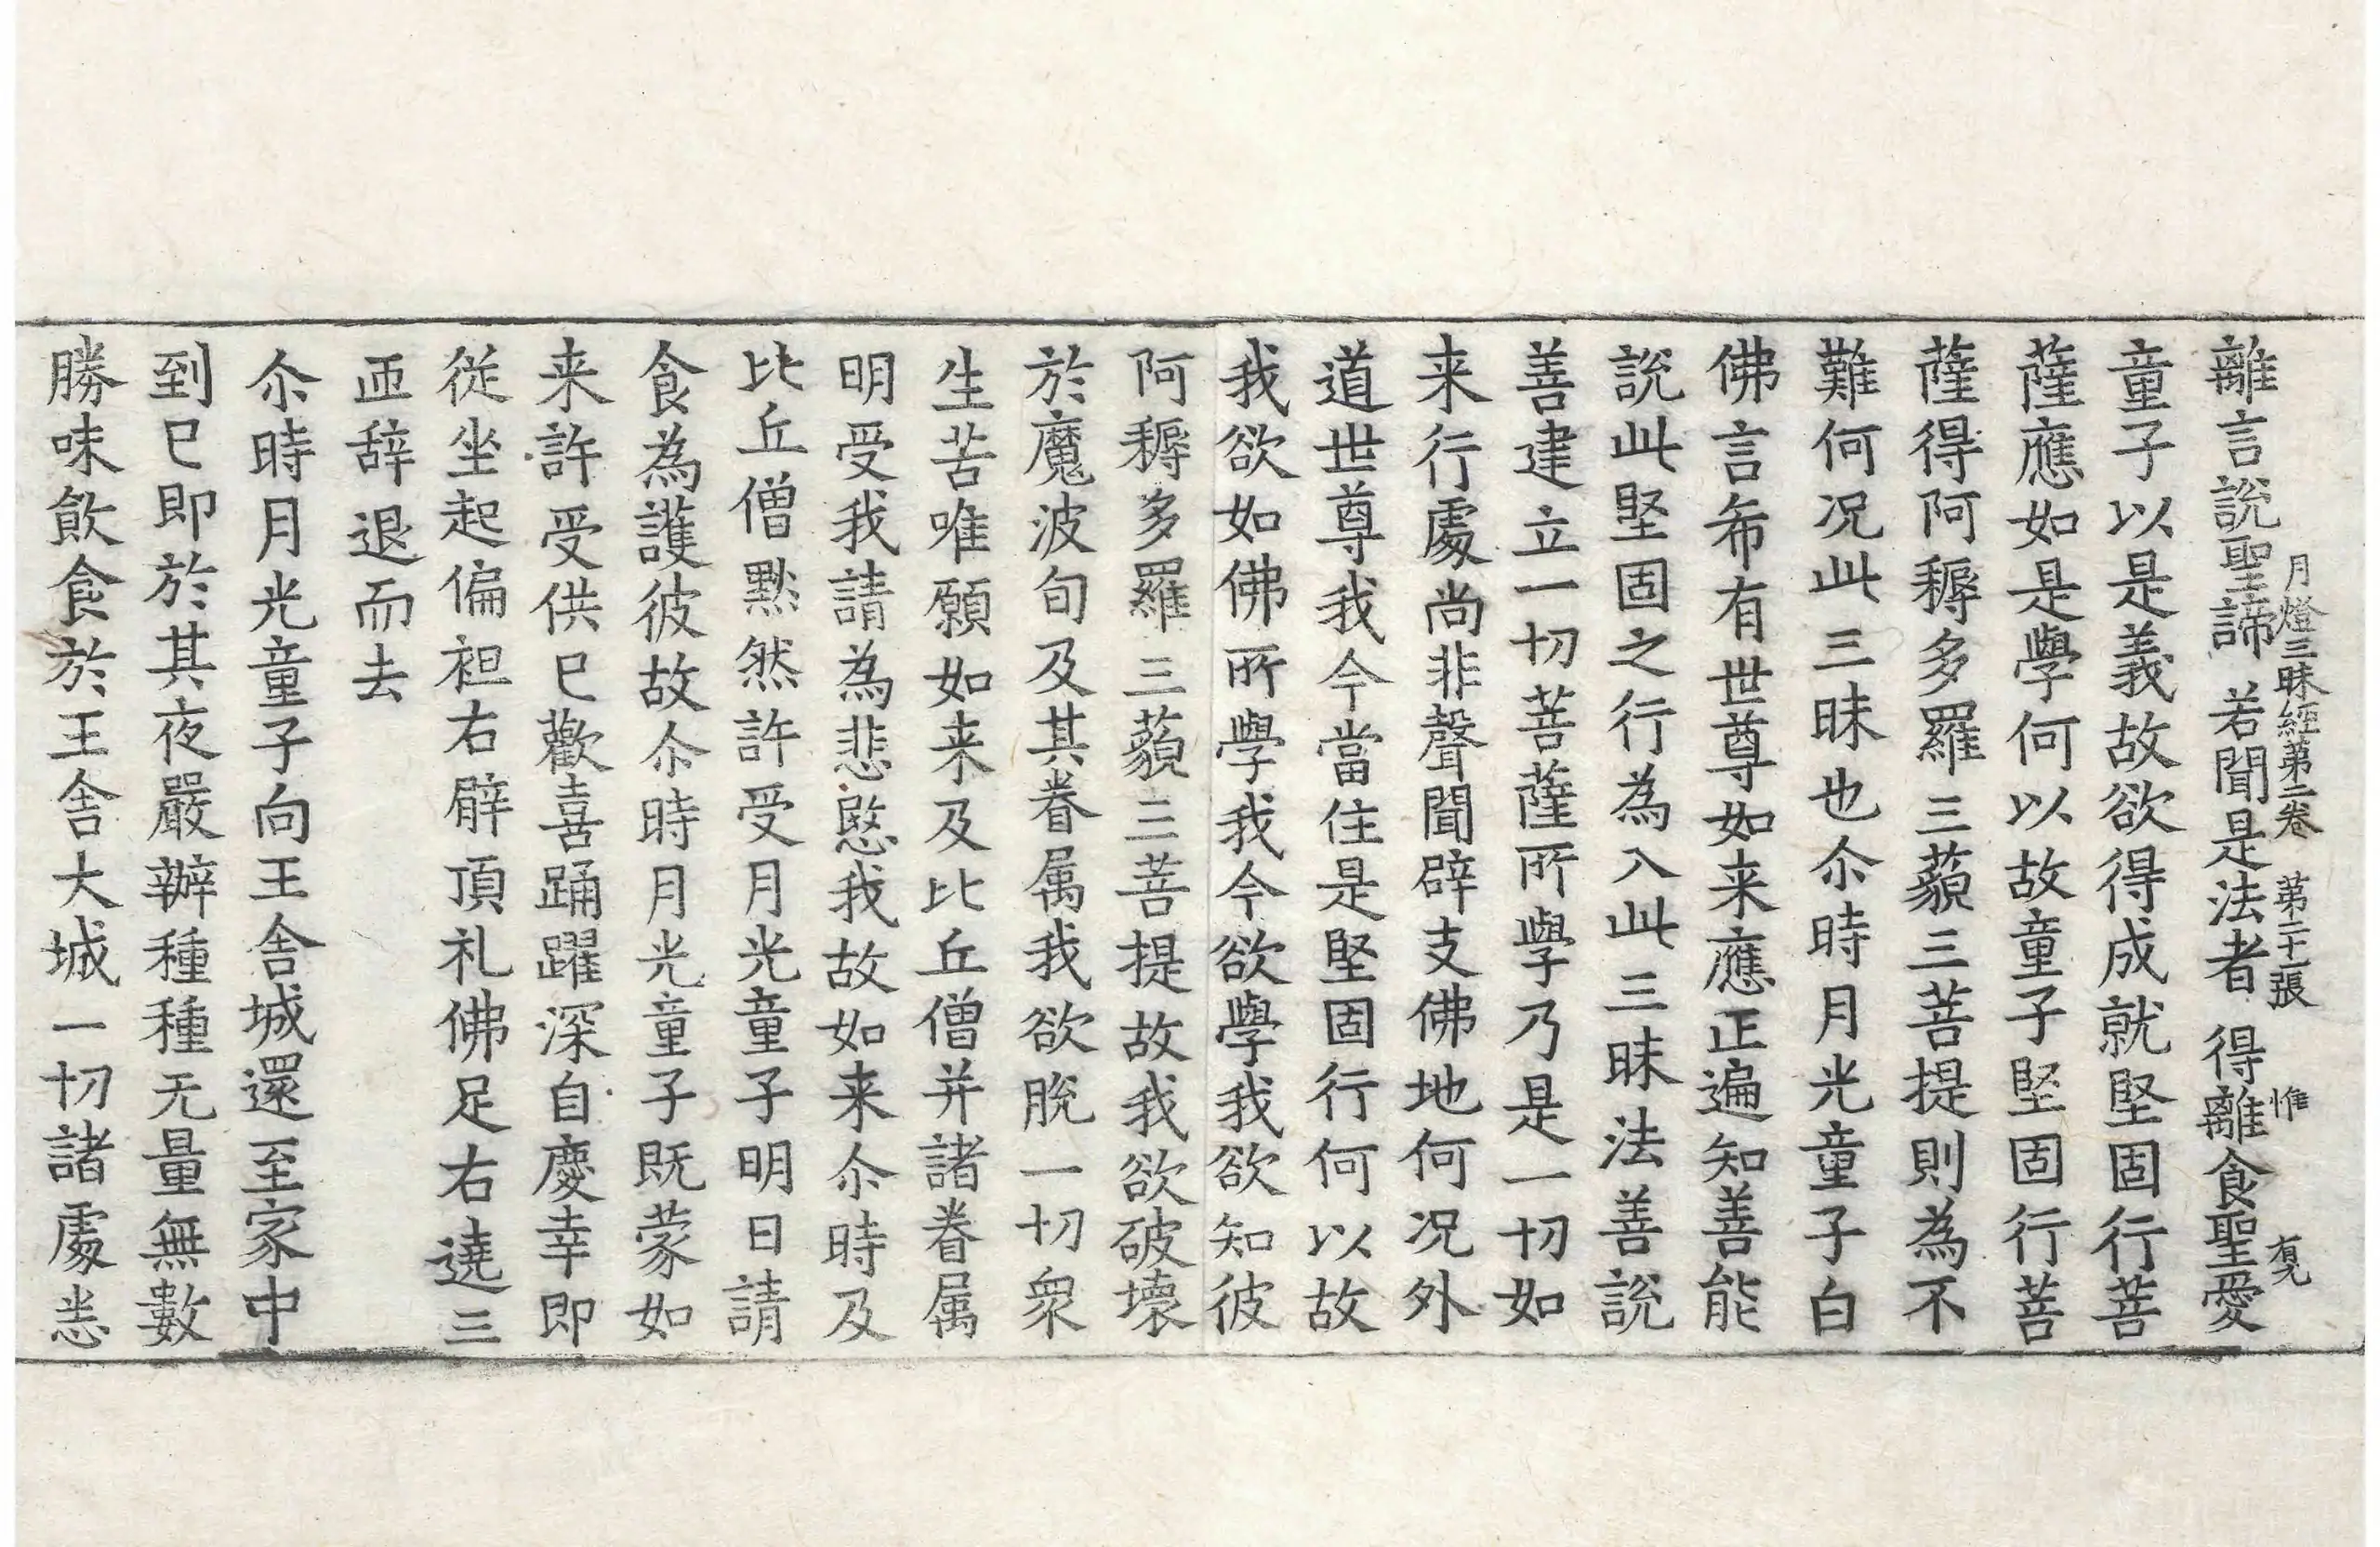 月燈三昧經第二卷　第二十一張　惟　有見
離言說聖諦　若聞是法者　得離食聖愛
童子以是義故欲得成就堅固行菩
薩應如是學何以故童子堅固行菩
薩得阿耨多羅三藐三菩提則為不
難何况此三昧也尒時月光童子白
佛言希有世尊如来應正遍知善能
說此堅固之行為入此三昧法善說
善建立一切菩薩所學乃是一切如
来行處尚非聲聞辟支佛地何况外
道世尊我今當住是堅固行何以故
我欲如佛所學我今欲學我欲知彼
阿耨多羅三藐三菩提故我欲破壞
於魔波旬及其眷属我欲脫一切衆
生苦唯願如来及比丘僧并諸眷属
明受我請為悲愍我故如来尒時及
比丘僧默然許受月光童子明日請
食為護彼故尒時月光童子既蒙如
来許受供巳歡喜踊躍深自慶幸即
從坐起偏袒右臂頂礼佛足右遶三
迊辞退而去
尒時月光童子向王舍城還至家中
到巳即於其夜嚴辦種種无量無數
勝味飲食於王舍大城一切諸處悉